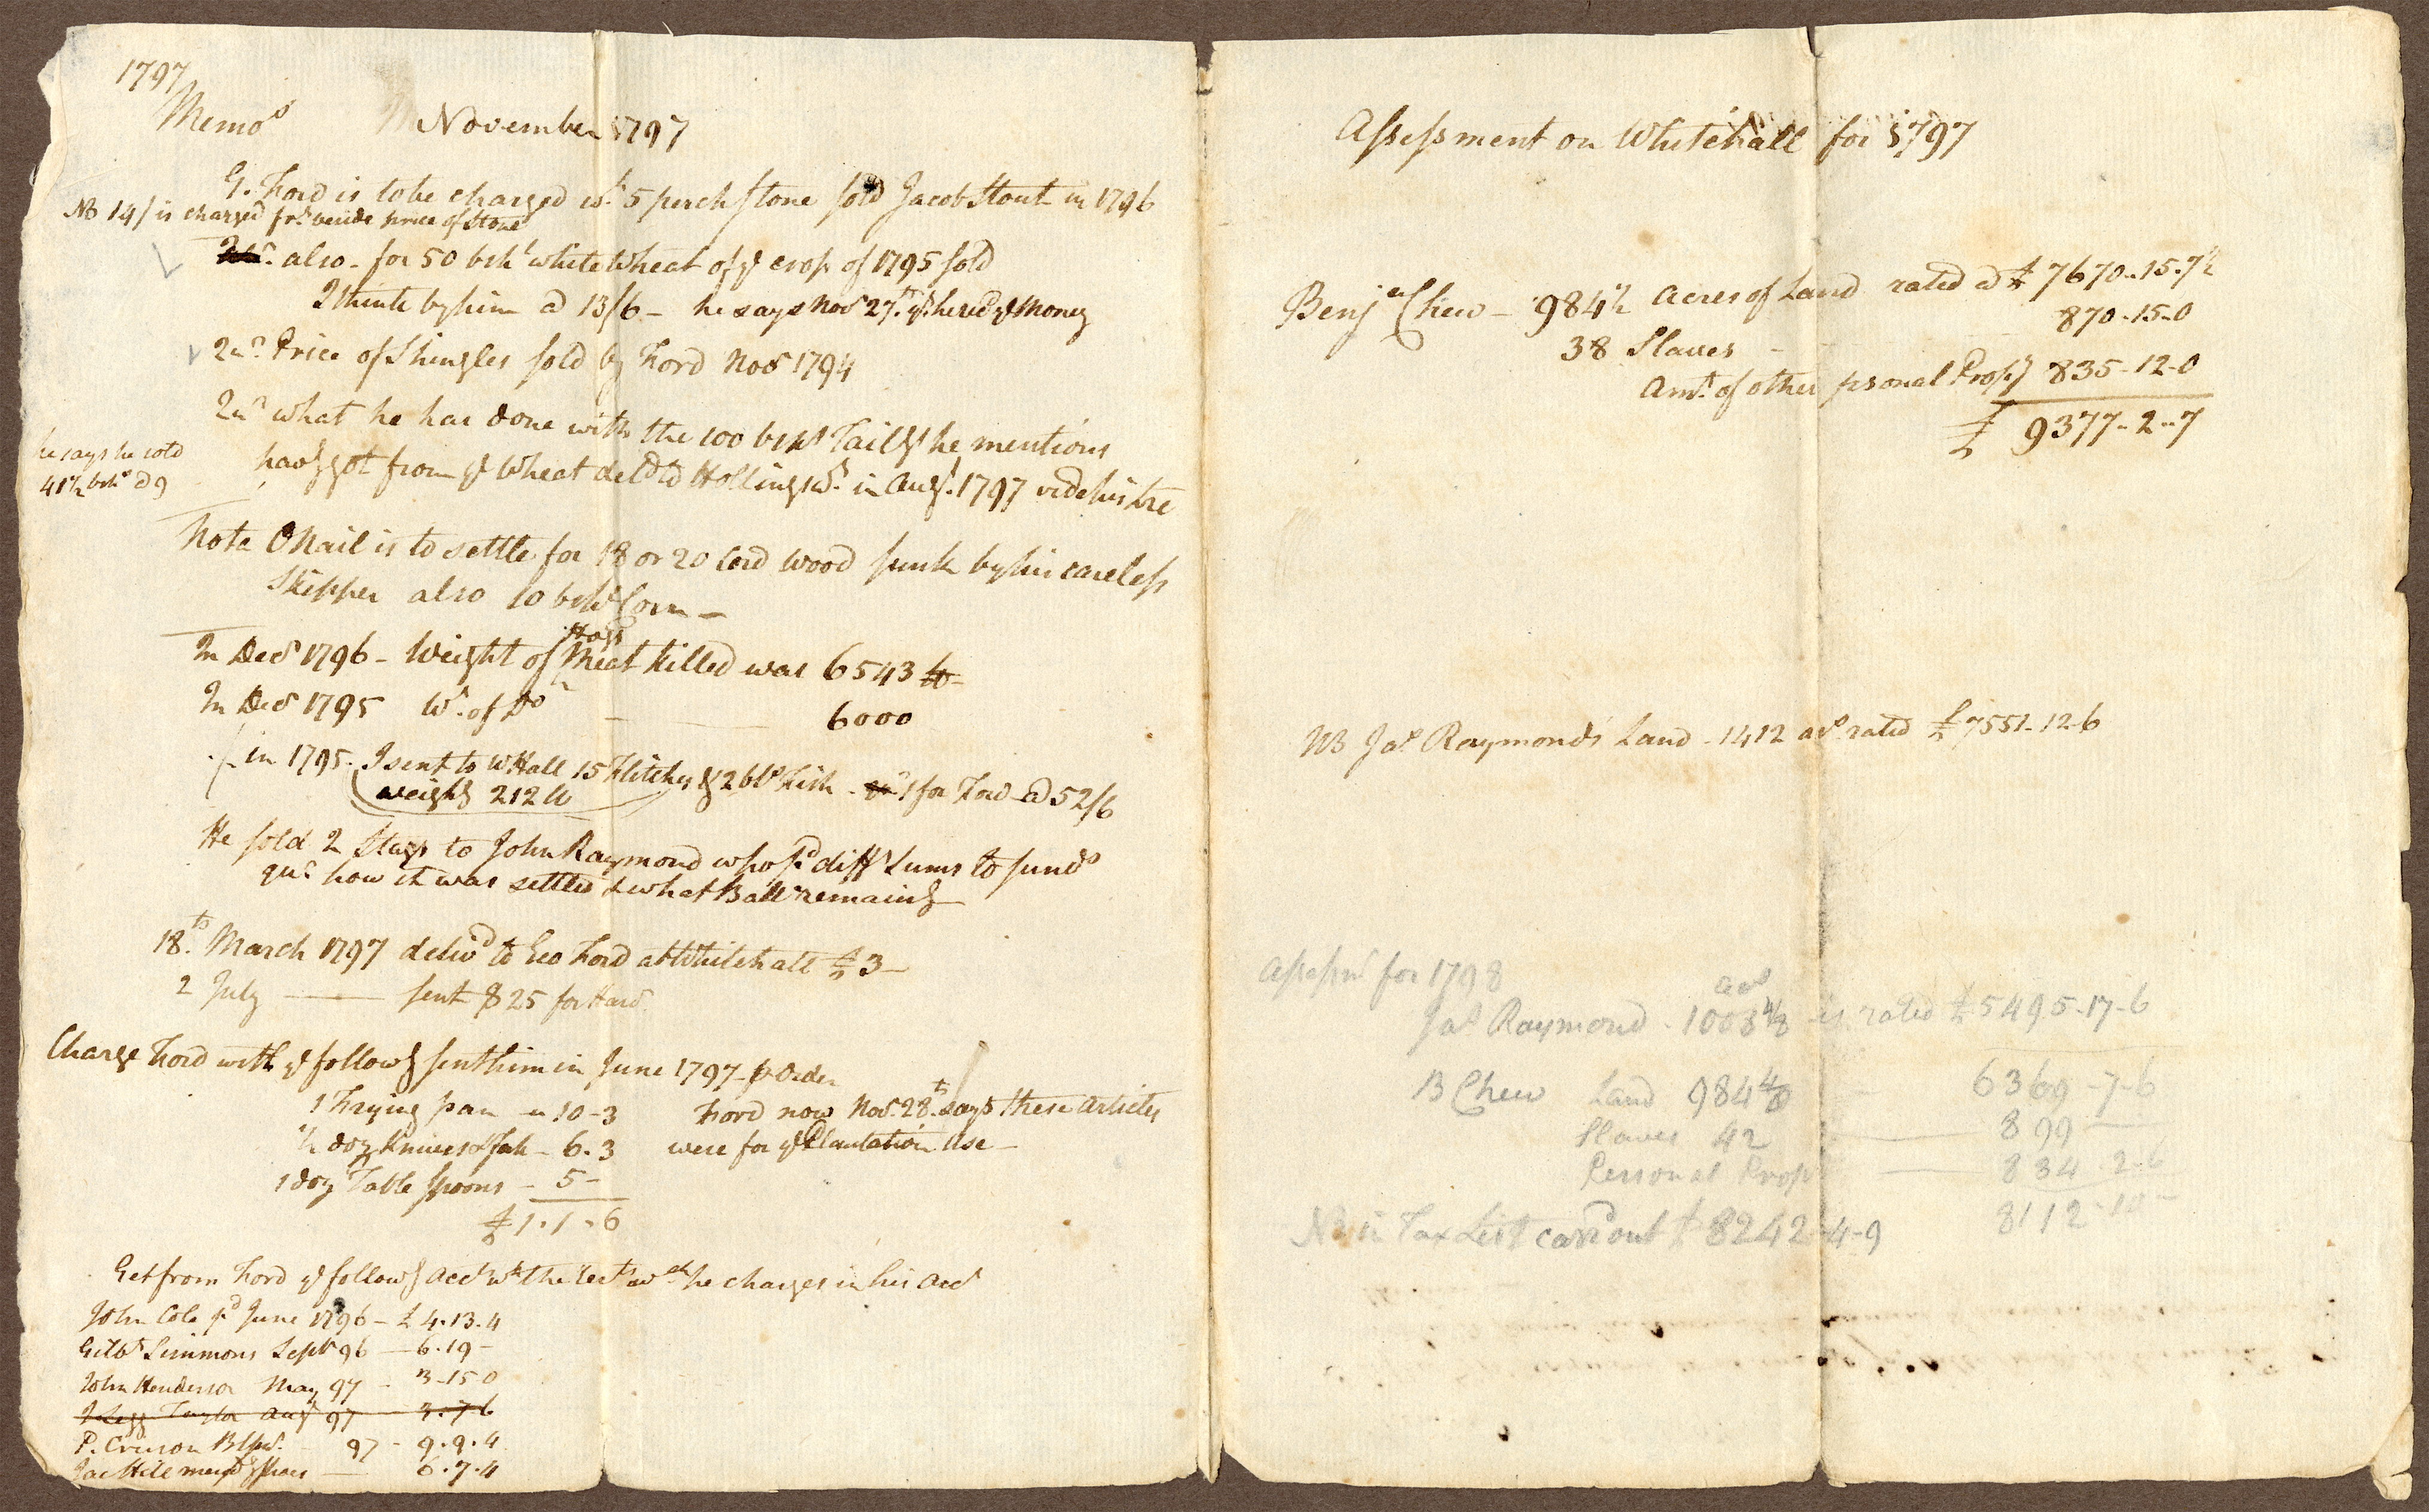 1797
Memos November 1797
G. Ford is to be charged wt. 5 perch stone sold Jacob Stout in 1796
NB 14/ is charged price of Stone
also - for 50 bshl white Wheat of ye crop of 1795 sold
I think by him @ 13/6 - he says Novr 27th. yt. he recd ye Money
Price of Shingles sold by Ford Novr 1794
what he has done with the 100 bshs Tailgs he mentions
havg got from ye Wheat deld to Hollingsw. in Augt. 1797 vide his Lre
he says he sold
41½ bshs @ 9
Note ONail is to settle for 18 or 20 Cord wood sunk by his careless
Skipper also 10 bshs Corn -
In Decr 1796 - Weight of Hogs Meat killed was 6543 lb -
In Decr 1795 Wt. of Do - 6000
in 1795. I sent to WHall 15 Flitches & 2 bls Fish 1 for Ford @ 52/6
weighg 212 lb
He sold 2 Stags to John Raymond who pd diffr Sums to sunds
qu. how it was settled & what Balle remaing
18th. March 1797 delivd to Geo Ford at Whitehall £3 -
2 July — sent $25 for Hard.
Charge Ford with ye followg sent him in June 1797 - p Order
1 Frying pan - 10-3 Ford now Novr. 28th. says these articles
½ doz Knives & fork - 6.3 were for ye Plantation Use -
1 doz Table Spoons - 5 -
£1.1.6
Get from Ford ye followg acctts wh. the rects wch he charges in his acct
John Cole pd June 1796 - £4.13.4
Gilbt Simmons Septr 96 - 6.19 -
John Henderson May 97 - 3-15-0
Taylor Augt 97 - 3.7.6
P. Crieson Blsm. 97 - 9.9.4
Jac Hill - 6.7.4
Assessment on Whitehall for 1797
Benja Chew - 984½ Acres of Land rated @ £7670..15..7½
38 Slaves - 870-15-0
Amt. of other psonal Propy 835-12-0
£ 9377-2-7
NB Jas Raymonds Land - 1412 acs rated £7551-12-6
Assessmt for 1798
Jas Raymond - 1003 4/8 acs is rated £5495-17-6
B Chew Land 984 4/8 - 6369-7-6
Slaves 42 — 899 —
Personal Prop — 834-2-6
8112-10-
NB in Tax List carrd out £8242-4-9